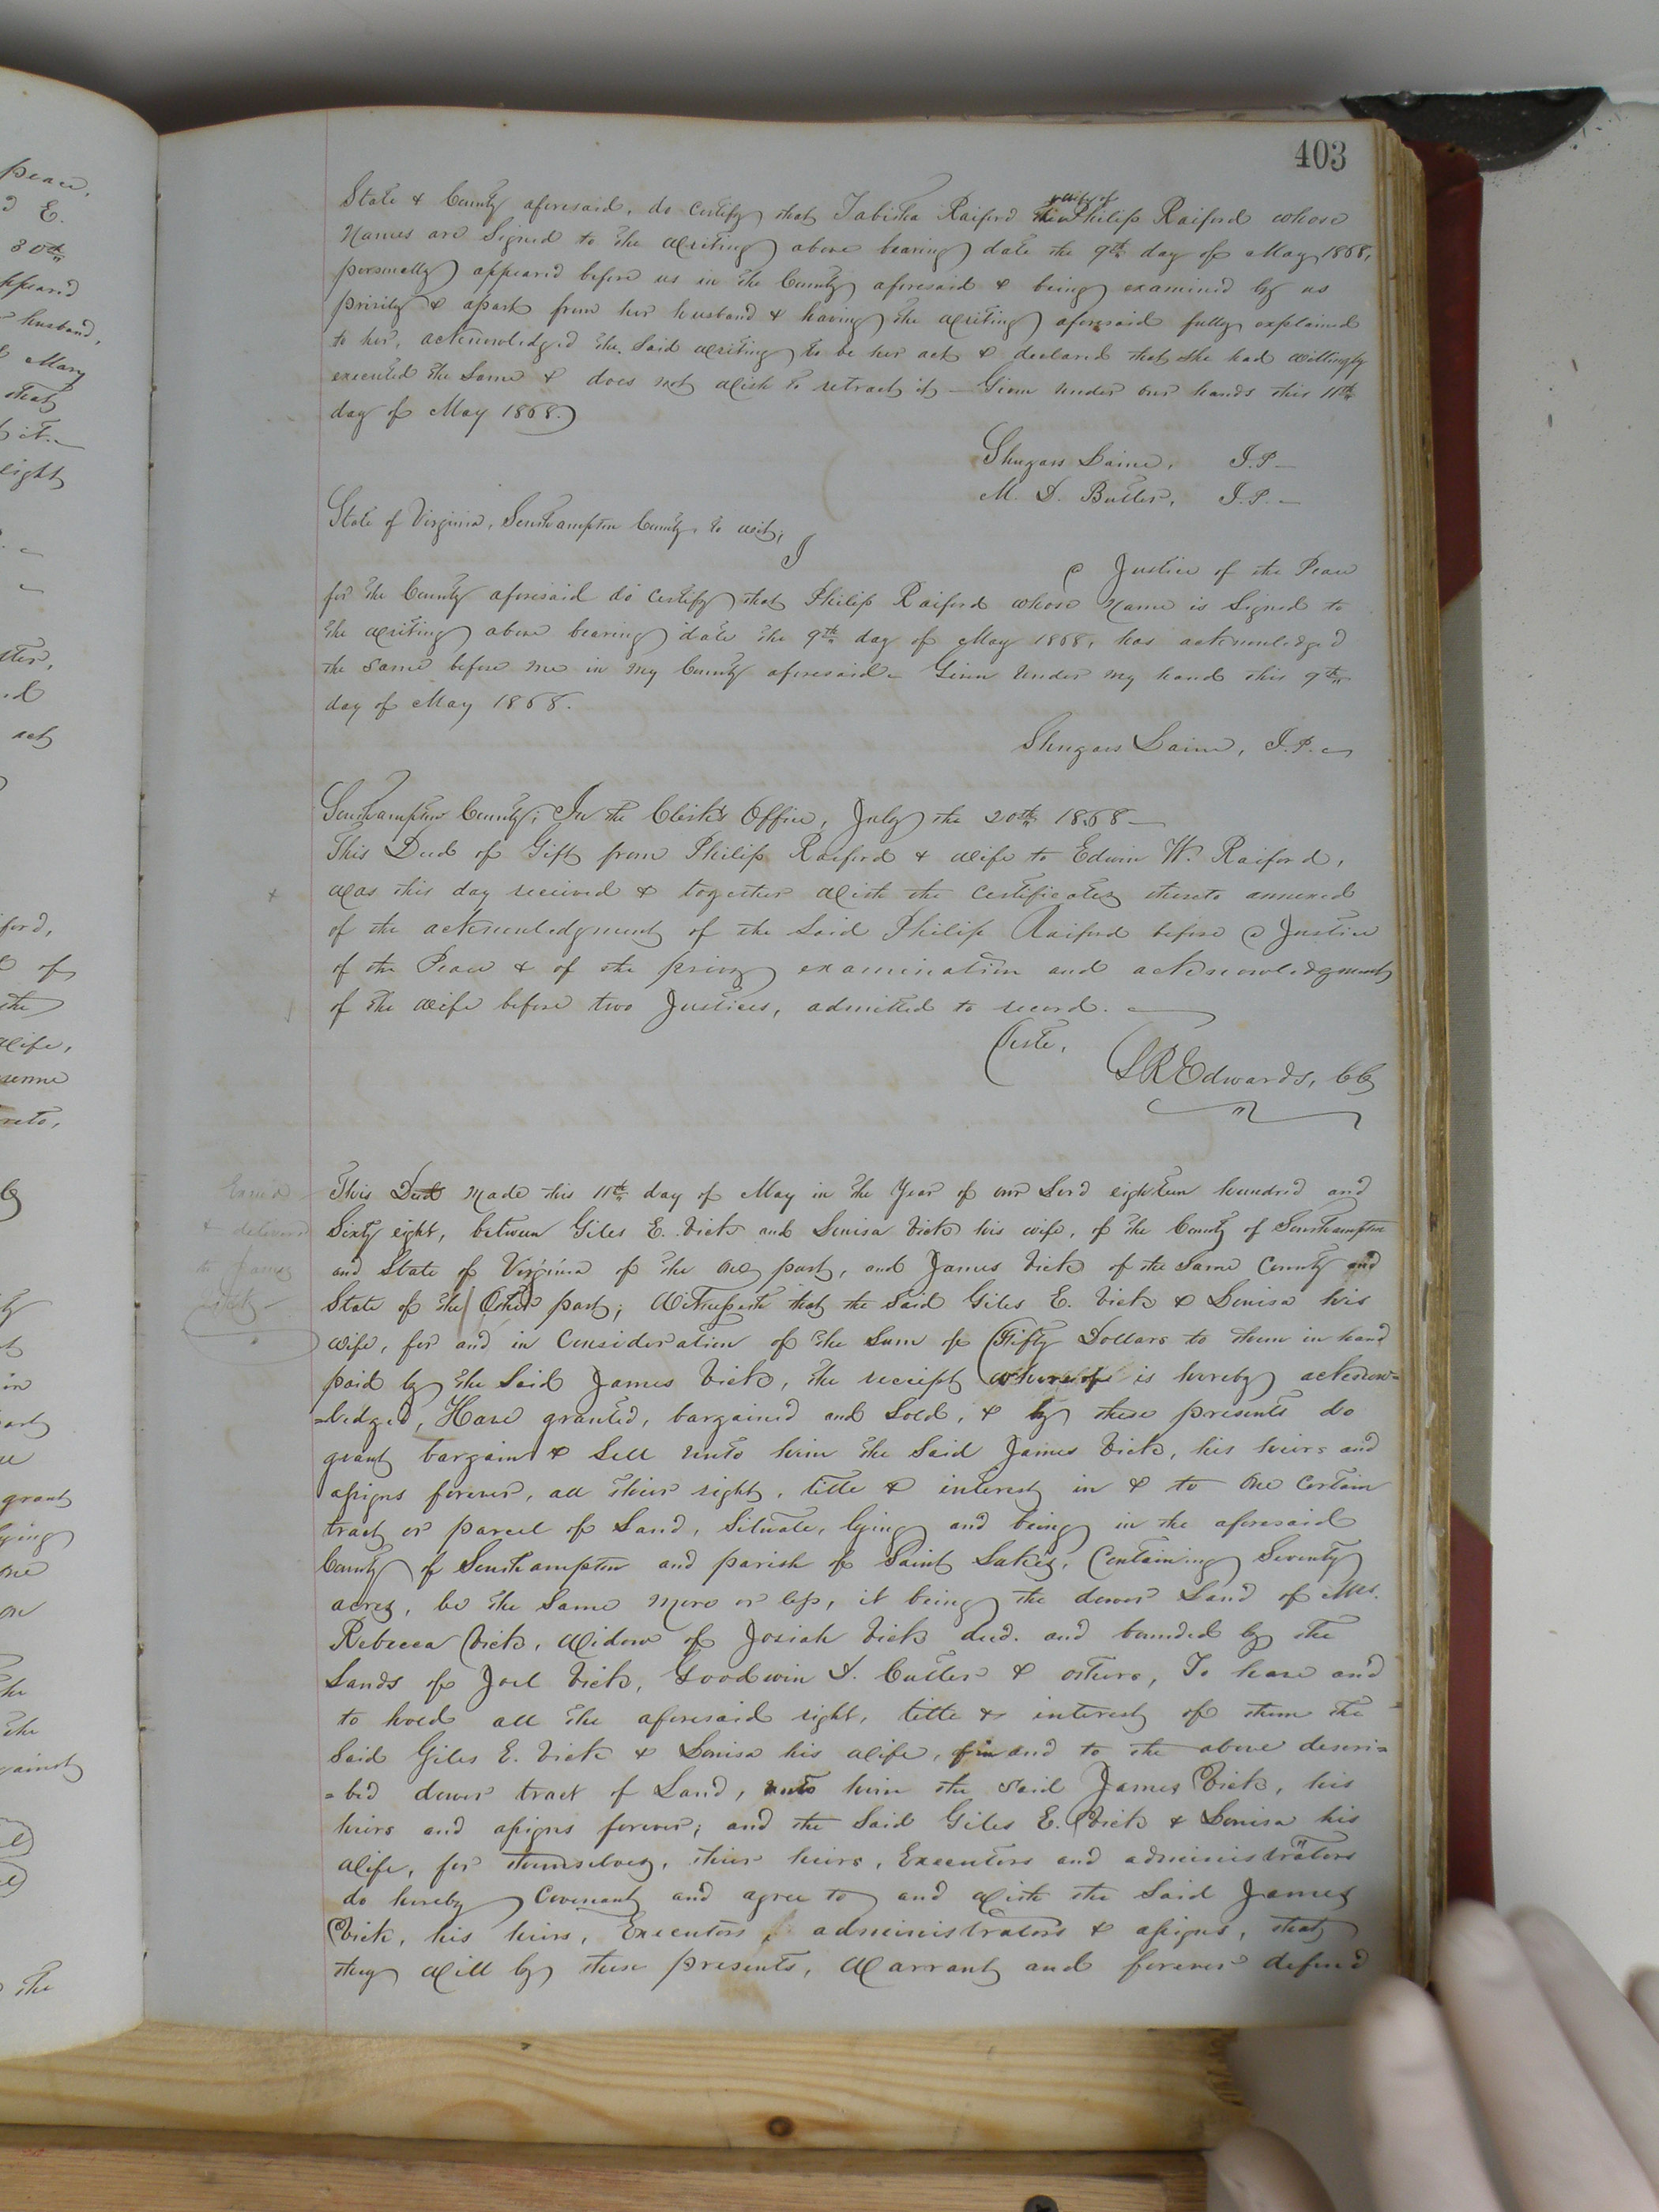 403
State & County aforesaid, do certify that Tabitha Raiford wife of Philip Raiford whose
Names are Signed to the writing above bearing date the 9th day of May 1868,
personally appeared before us in the County aforesaid & being examined by us
privily & apart from her husband & having the writing aforesaid fully explained
to her, acknowledged the said writing to be her act & declared that she had willingly
executed the same & does not wish to retract it — Given under our hands this 11th
day of May 1868.
Shugars Laine, J.P. —
M. D. Butler, J.P. —
State of Virginia, Southampton County, to wit;
I
a Justice of the Peace
for the County aforesaid do certify that Philip Raiford whose Name is Signed to
the writing above bearing date the 9th day of May 1868, has acknowledged
the same before me in my County aforesaid. Given under my hand this 9th
day of May 1868.
Shugars Laine, J.P.
Southampton County; In the Clerk's Office, July the 20th 1868 —
This Deed of Gift from Philip Raiford & wife to Edwin W. Raiford,
was this day received & together with the certificates thereto annexed
of the acknowledgment of the said Philip Raiford before a Justice
of the Peace & of the privy examination and acknowledgment
of the wife before two Justices, admitted to record.
Teste,
L R Edwards, CC
Exm'd
& delivered
to James
Vick —
This Deed made this 11th day of May in the Year of our Lord eighteen hundred and
Sixty eight, between Giles E. Vick and Louisa Vick his wife, of the County of Southampton
and State of Virginia of the one part, and James Vick of the same County and
State of the Other part; Witnesseth that the said Giles E. Vick & Louisa his
wife, for and in Consideration of the sum of Fifty Dollars to them in hand
paid by the said James Vick, the receipt whereof is hereby acknow=
=ledged, Have granted, bargained and sold, & by these presents do
grant bargain & sell unto him the said James Vick, his heirs and
assigns forever, all their right, title & interest in & to one certain
tract or parcel of Land, situate, lying and being in the aforesaid
County of Southampton and parish of Saint Lukes, Containing Seventy
acres, be the same more or less, it being the dower Land of Mrs.
Rebecca Vick, Widow of Josiah Vick decd. and bounded by the
Lands of Joel Vick, Goodwin & others, To have and
to hold all the aforesaid right, title & interest of them the
said Giles E. Vick & Louisa his wife, in and to the above descri=
=bed dower tract of Land, unto him the said James Vick, his
heirs and assigns forever; and the said Giles E. Vick & Louisa his
wife, for themselves, their heirs, Executors and administrators
do hereby Covenant and agree to and with the said James
Vick, his heirs, Executors, administrators & assigns, that
they will by these presents, Warrant and forever defend